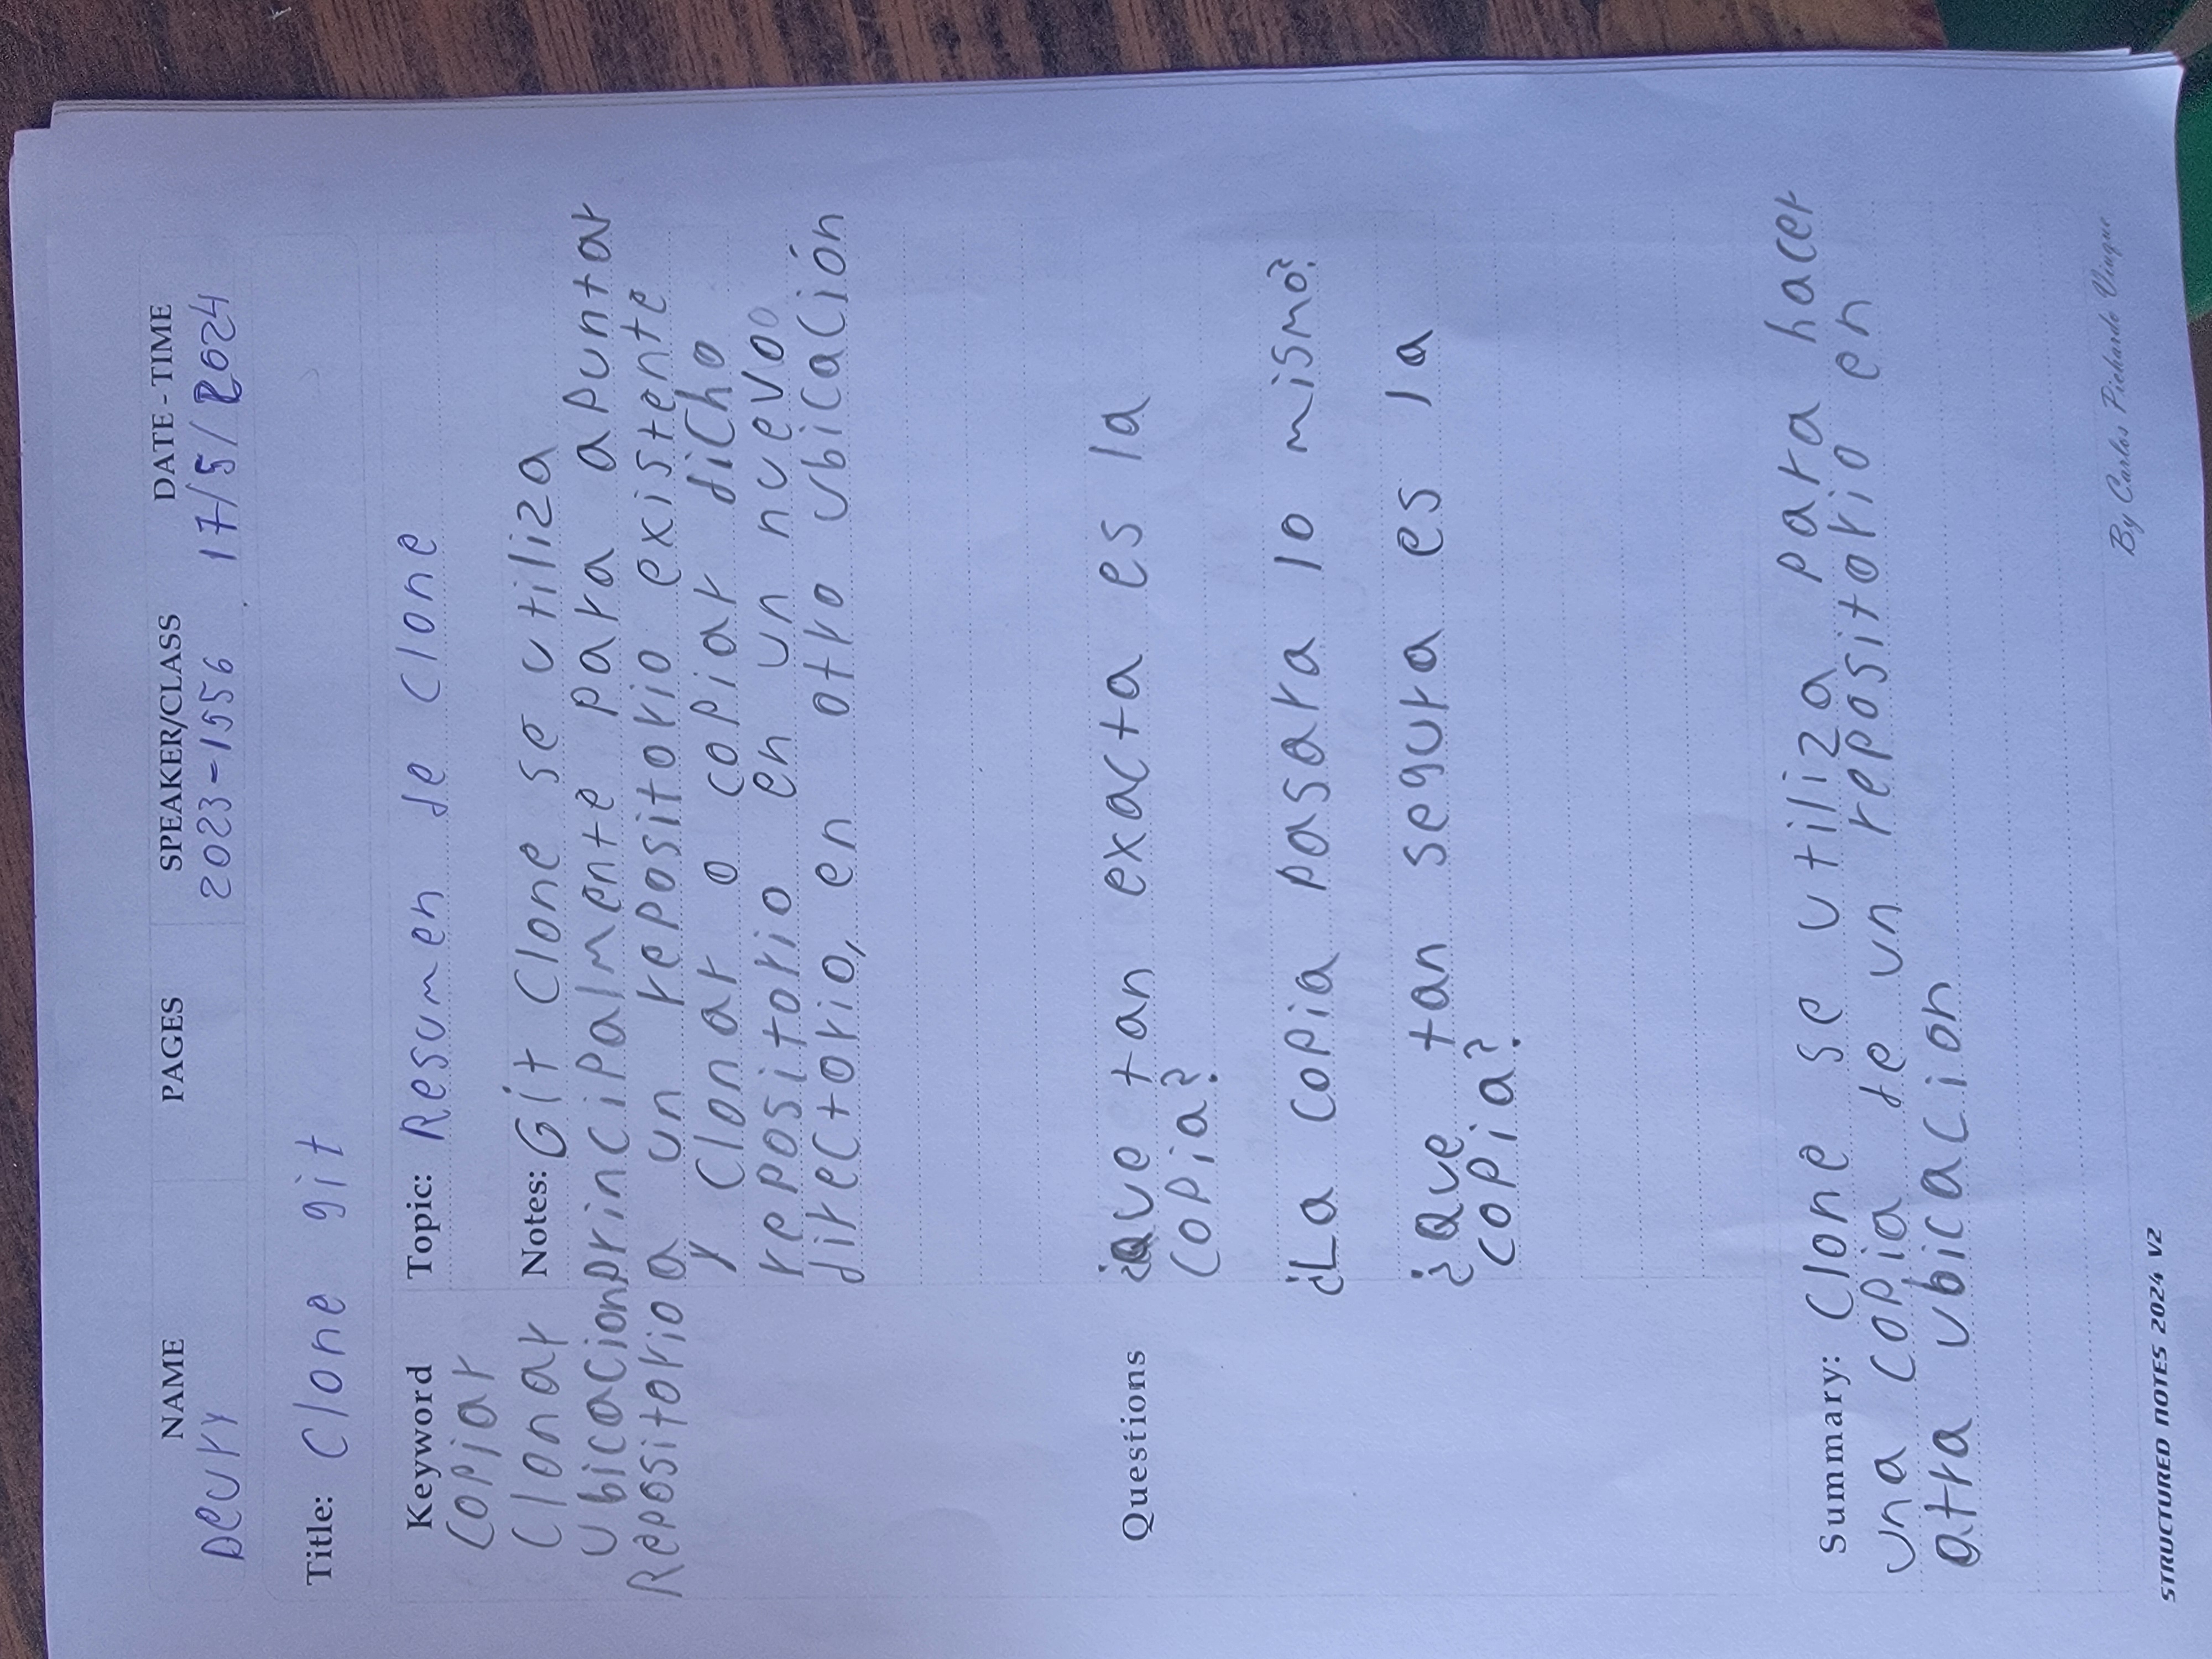 NAME PAGES SPEAKER/CLASS DATE - TIME
Deury 2023-1556 17/5/2024
Title: Clone git
Keyword
Copiar
Clonar
Ubicacion
Repositorio
Topic: Resumen de Clone
Notes: Git Clone se utiliza
principalmente para apuntar
a un repositorio existente
y Clonar o copiar dicho
repositorio en un nuevo
directorio, en otro ubicación
Questions
¿Que tan exacta es la
copia?
¿La copia pasara lo mismo?
¿Que tan segura es la
copia?
Summary: Clone se utiliza para hacer
una copia de un repositorio en
otra ubicacion
By Carlos Pichardo Viuque
STRUCTURED NOTES 2024 V2